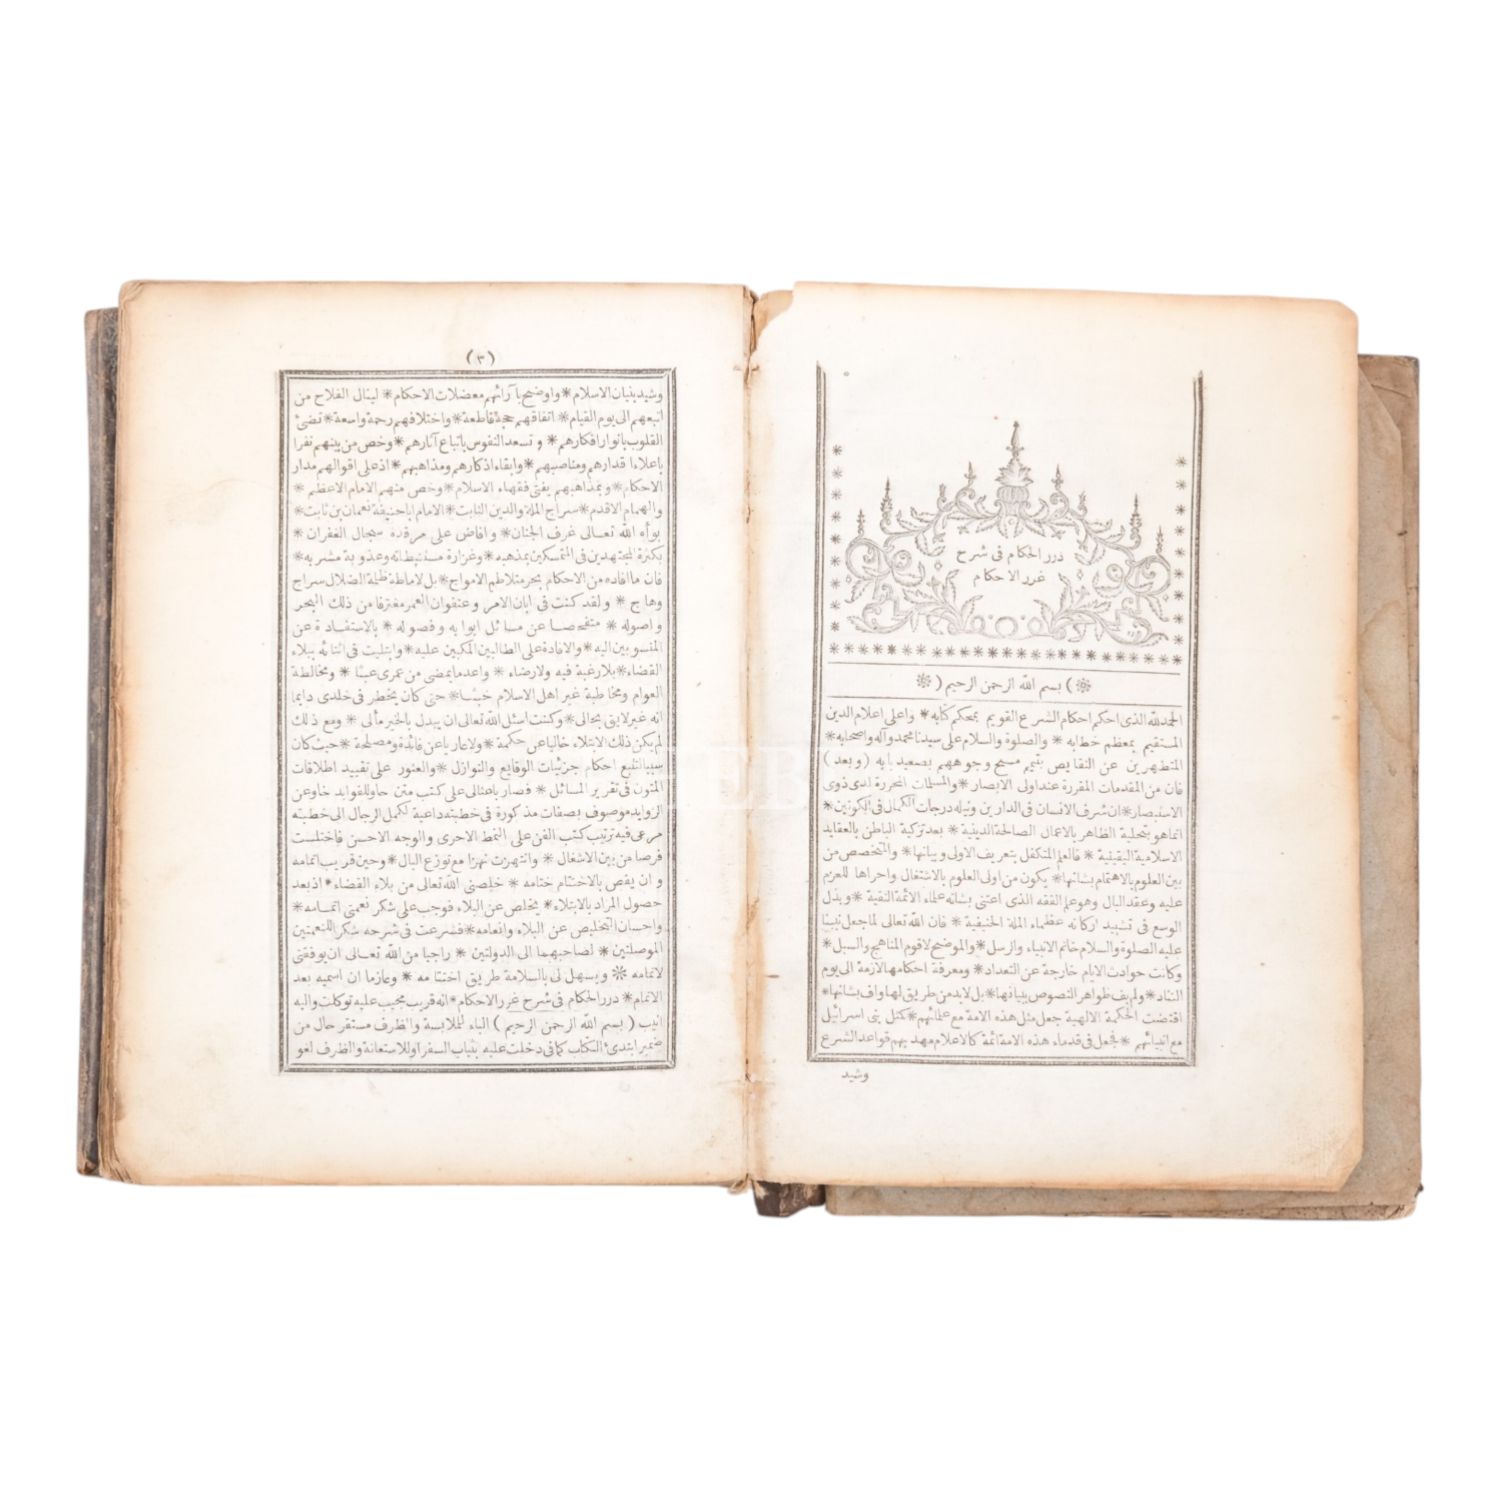 درر الحكام فى شرح
غرر الاحكام
بسم الله الرحمن الرحيم
الحمدلله الذى احكم احكام الشرع القويم بمحكم كتابه * واعلى اعلام الدين
المستقيم بمعظم خطابه * والصلوة والسلام على سيدنا محمد وآله واصحابه *
المتطهرين عن النقايص بتيمم مسح وجوههم بصعيد بابه (وبعد)
فان من المقدمات المقررة عند اولى الابصار * والمسلمات المحررة لدى ذوى
الاستبصار * ان شرف الانسان فى الدارين ونيله درجات الكمال فى الكونين *
انما هو بتحلية الظاهر بالاعمال الصالحة الدينية * بعد تزكية الباطن بالعقايد
الاسلامية اليقينية * فالعلم المتكفل بتعريف الاولى وبيانها * والتخصص من
بين العلوم بالاهتمام بشانها * يكون من اولى العلوم بالاشتغال واحراها للعزم
عليه وعقد البال وهو علم الفقه الذى اعتنى بشانه علماء الائمة النقية * وبذل
الوسع فى تشييد اركانه عظماء الملة الحنيفية * فان الله تعالى لما جعل نبينا
عليه الصلوة والسلام خاتم الانبياء والرسل * والموضح لاقوم المناهج والسبل *
وكانت حوادث الايام خارجة عن التعداد * ومعرفة احكامها لازمة الى يوم
التناد * ولم يف ظواهر النصوص ببيانها * بل لابد من طريق لها واف بشانها *
اقتضت الحكمة الالهية جعل مثل هذه الامة مع علمائهم * كمثل بنى اسرائيل
مع انبيائهم * فجعل فى قدماء هذه الامة ائمة كالاعلام مهد بهم قواعد الشرع
وشيد
(٣)
وشيد بنيان الاسلام * واوضح بآرائهم معضلات الاحكام * لينال الفلاح من
اتبعهم الى يوم القيام * اتفاقهم حجة قاطعة * واختلافهم رحمة واسعة * تضئ
القلوب بانوار افكارهم * وتسعد النفوس باتباع آثارهم * وخص من بينهم نفرا
باعلاء اقدارهم ومناصبهم * وابقاء اذكارهم ومذاهبهم * اذ على اقوالهم مدار
الاحكام * وبمذاهبهم يفتى فقهاء الاسلام * وخص منهم الامام الاعظم *
والهمام الاقدم * سراج الملة والدين الثابت * الامام ابا حنيفة نعمان بن ثابت *
بوأه الله تعالى غرف الجنان * وافاض على مرقده سجال الغفران *
بكثرة المجتهدين فى المتمسكين بمذهبه * وغزارة مستنبطاته وعذوبة مشربه *
فان ما افاده من الاحكام بحر متلاطم الامواج * بل لاماطة ظلمة الضلال سراج
وهاج * ولقد كنت فى ابان الامر وعنفوان العمر مغترفا من ذلك البحر
واصوله * متفحصا عن مسائل ابوابه وفصوله * بالاستفادة عن
المنسوبين اليه * والافادة على الطالبين المكبين عليه * وابتليت فى اثنائه ببلاء
القضاء * بلا رغبة فيه ولا رضاء * واعد ما يمضى من عمرى عبثا * ومخالطة
العوام ومخاطبة غير اهل الاسلام خبثا * حتى كان يخطر فى خلدى دايما
انه غير لايق بحالى * وكنت اسئل الله تعالى ان يبدل بالخير مآلى * ومع ذلك
لم يكن ذلك الابتلاء خاليا عن حكمة * ولا عاريا عن فائدة ومصلحة * حيث كان
سببا لتتبع احكام جزئيات الوقايع والنوازل * والعثور على تقييد اطلاقات
المتون فى تقرير المسائل * فصار باعثا لى على كتب متن حاو للفوايد خاو عن
الزوايد موصوف بصفات مذكورة فى خطبته داعية لكمل الرجال الى خطبته
مرعى فيه ترتيب كتب الفن على النمط الاحرى والوجه الاحسن فاختلست
فرصا من بين الاشغال * وانتهزت نهزا مع توزع البال * وحين قرب اتمامه
وان يقص بالاختتام ختامه * خلصنى الله تعالى من بلاء القضاء * اذ بعد
حصول المراد بالابتلاء * يخلص عن البلاء فوجب على شكر نعمتى اتمامه *
واحسان التخليص عن البلاء وانعامه * فشرعت فى شرحه شكرا للنعمتين
الموصلتين * لصاحبهما الى الدولتين * راجيا من الله تعالى ان يوفقنى
لاتمامه * ويسهل لى بالسلامة طريق اختتامه * وعازما ان اسميه بعد
الاتمام * درر الحكام فى شرح غرر الاحكام * انه قريب مجيب عليه توكلت واليه
انيب (بسم الله الرحمن الرحيم) الباء للملابسة والظرف مستقر حال من
ضمير ابتدئ الكتاب كما فى دخلت عليه بثياب السفر او للاستعانة والظرف لغو